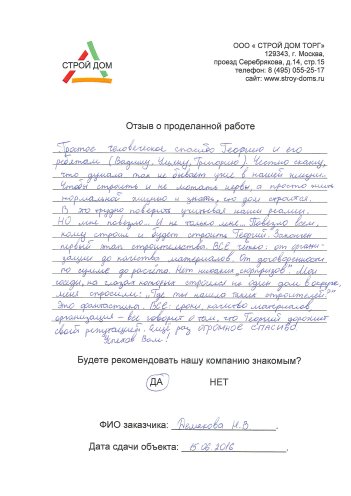 СТРОЙ ДОМ
ООО « СТРОЙ ДОМ ТОРГ»
129343, г. Москва,
проезд Серебрякова, д.14, стр.15
телефон: 8 (495) 055-25-17
сайт: www.stroy-doms.ru
Отзыв о проделанной работе
Простое человеческое спасибо Георгию и его
ребятам (Вадиму, Чилику, Григорию). Честно скажу,
что думала так не бывает уже в нашей жизни.
Чтобы строить и не мотать нервы, а просто жить
нормальной жизнью и знать, что дом строится.
В это трудно поверить учитывая наши реалии.
НО мне повезло. И не только мне. Повезло всем,
кому строил и будет строить Георгий. Закончен
первый этап строительства. ВСЕ четко: от органи-
зации до качества материалов. От договоренности
по сумме до расчета. Нет никаких „сюрпризов". Мои
соседи, на глазах которых строился не один дом в округе,
меня спросили: "Где ты нашла таких строителей?"
Это фантастика. ВСЕ: сроки, качество материалов,
организация - все говорит о том, что Георгий дорожит
своей репутацией. Еще раз ОГРОМНОЕ СПАСИБО.
Успехов Вам!
Будете рекомендовать нашу компанию знакомым?
ДА НЕТ
ФИО заказчика: Демехова Н.В
Дата сдачи объекта: 15.06.2016